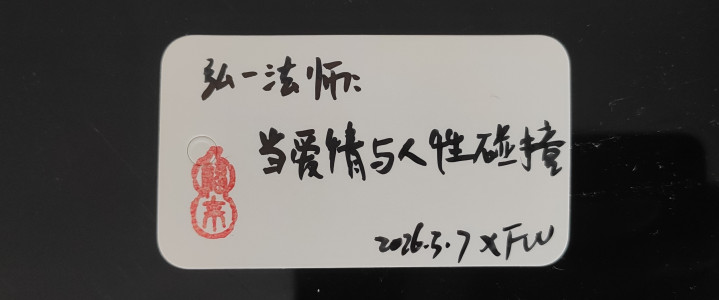 弘一法师:
当爱情与人性碰撞
2026.3.7 XFW